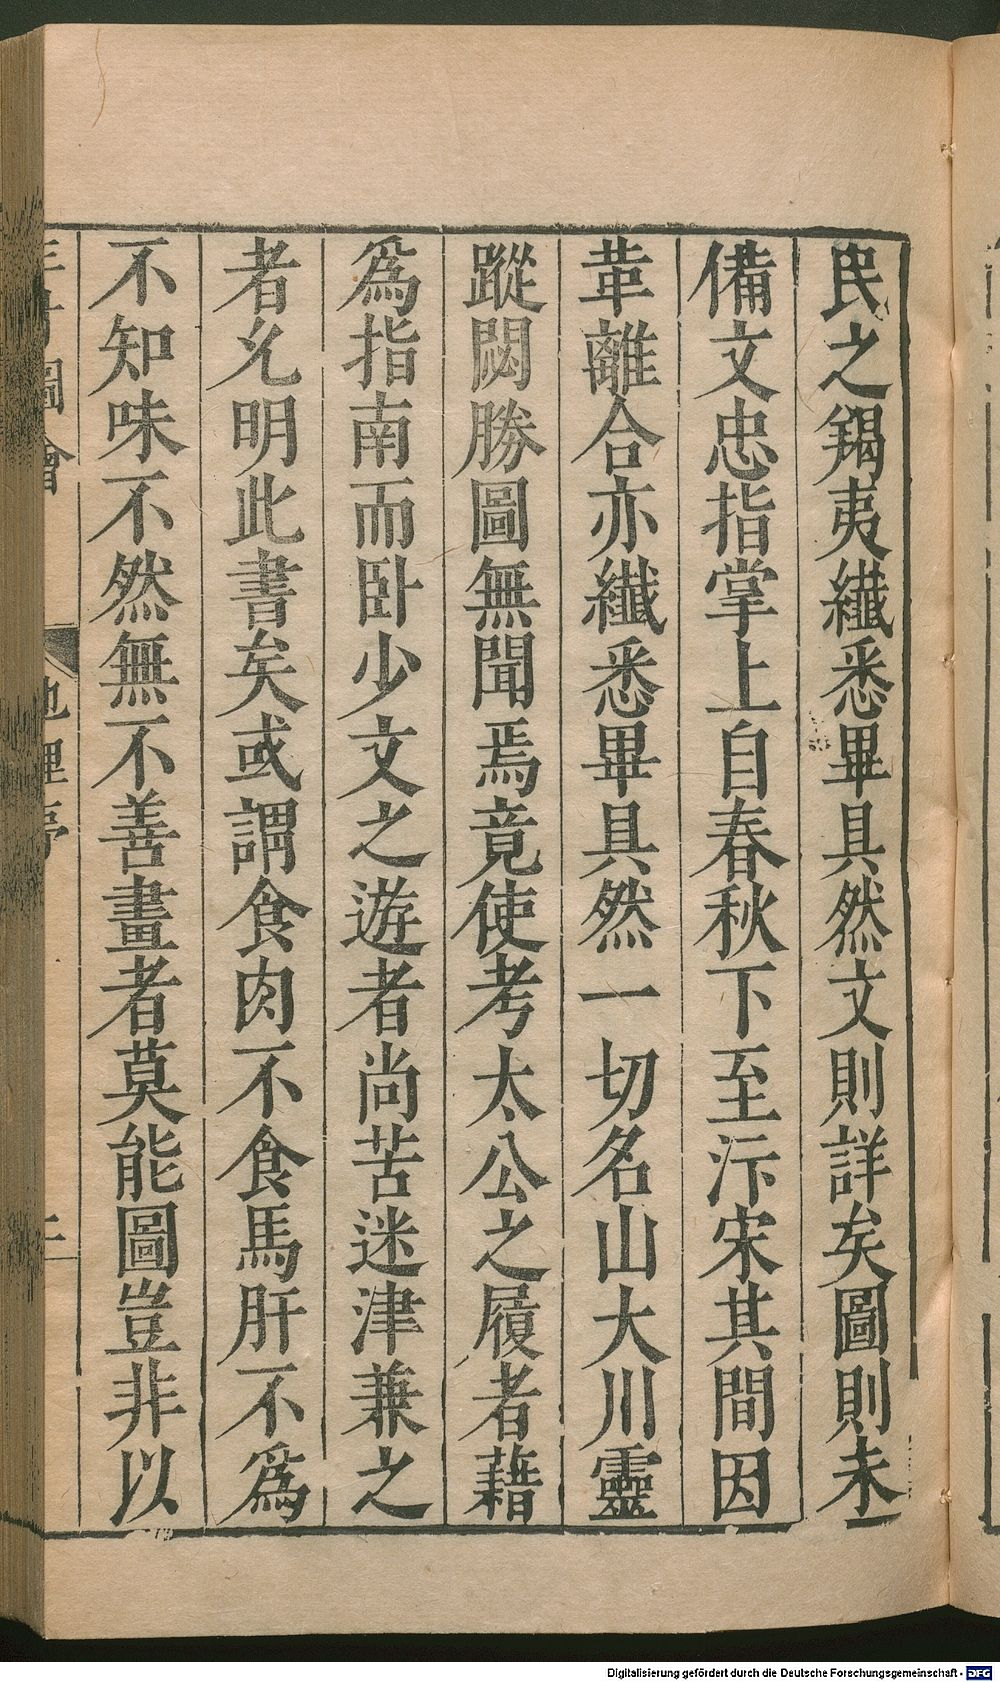 民之羯夷纖悉畢具然文則詳矣圖則未
備文忠指掌上自春秋下至汴宋其間因
革離合亦纖悉畢具然一切名山大川靈
蹤閟勝圖無聞焉竟使考太公之履者藉
為指南而卧少文之遊者尚苦迷津兼之
者允明此書矣或謂食肉不食馬肝不為
不知味不然無不善畫者莫能圖豈非以
圖會
地理序
Digitalisierung gefördert durch die Deutsche Forschungsgemeinschaft - DFG